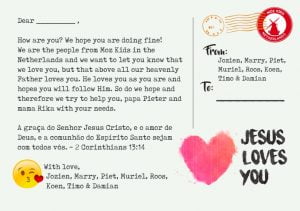 Dear ________ ,
How are you? We hope you are doing fine!
We are the people from Moz Kids in the
Netherlands and we want to let you know that
we love you, but that above all our heavenly
Father loves you. He loves you as you are and
hopes you will follow Him. So do we hope and
therefore we try to help you, papa Pieter and
mama Rika with your needs.
A graça do Senhor Jesus Cristo, e o amor de
Deus, e a comunhão do Espírito Santo sejam
com todos vós. – 2 Corinthians 13:14
With love,
Jozien, Marry, Piet, Muriel, Roos,
Koen, Timo & Damian
From:
Jozien, Marry, Piet,
Muriel, Roos, Koen,
Timo & Damian
To:
JESUS
LOVES
YOU